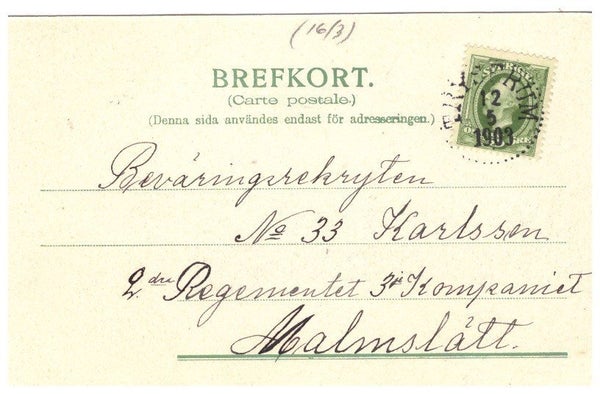 (16/3)
BREFKORT.
(Carte postale.)
(Denna sida användes endast för adresseringen.)
SVERIGE
12
5
1903
Beväringsrekryten
No 33 Karlssen
2dra Regementet 3je Kompaniet
Malmslätt.